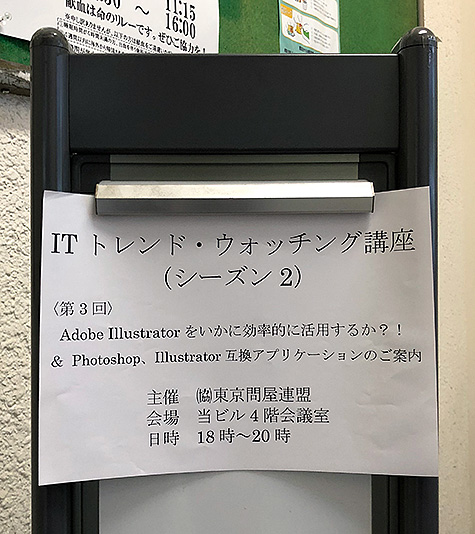 11:15
16:00
献血は命のリレーです。ぜひご協力を!
IT トレンド・ウォッチング講座
(シーズン2)
〈第3回〉
Adobe Illustrator をいかに効率的に活用するか?!
& Photoshop、Illustrator 互換アプリケーションのご案内
主催 ㈿東京問屋連盟
会場 当ビル4階会議室
日時 18時～20時